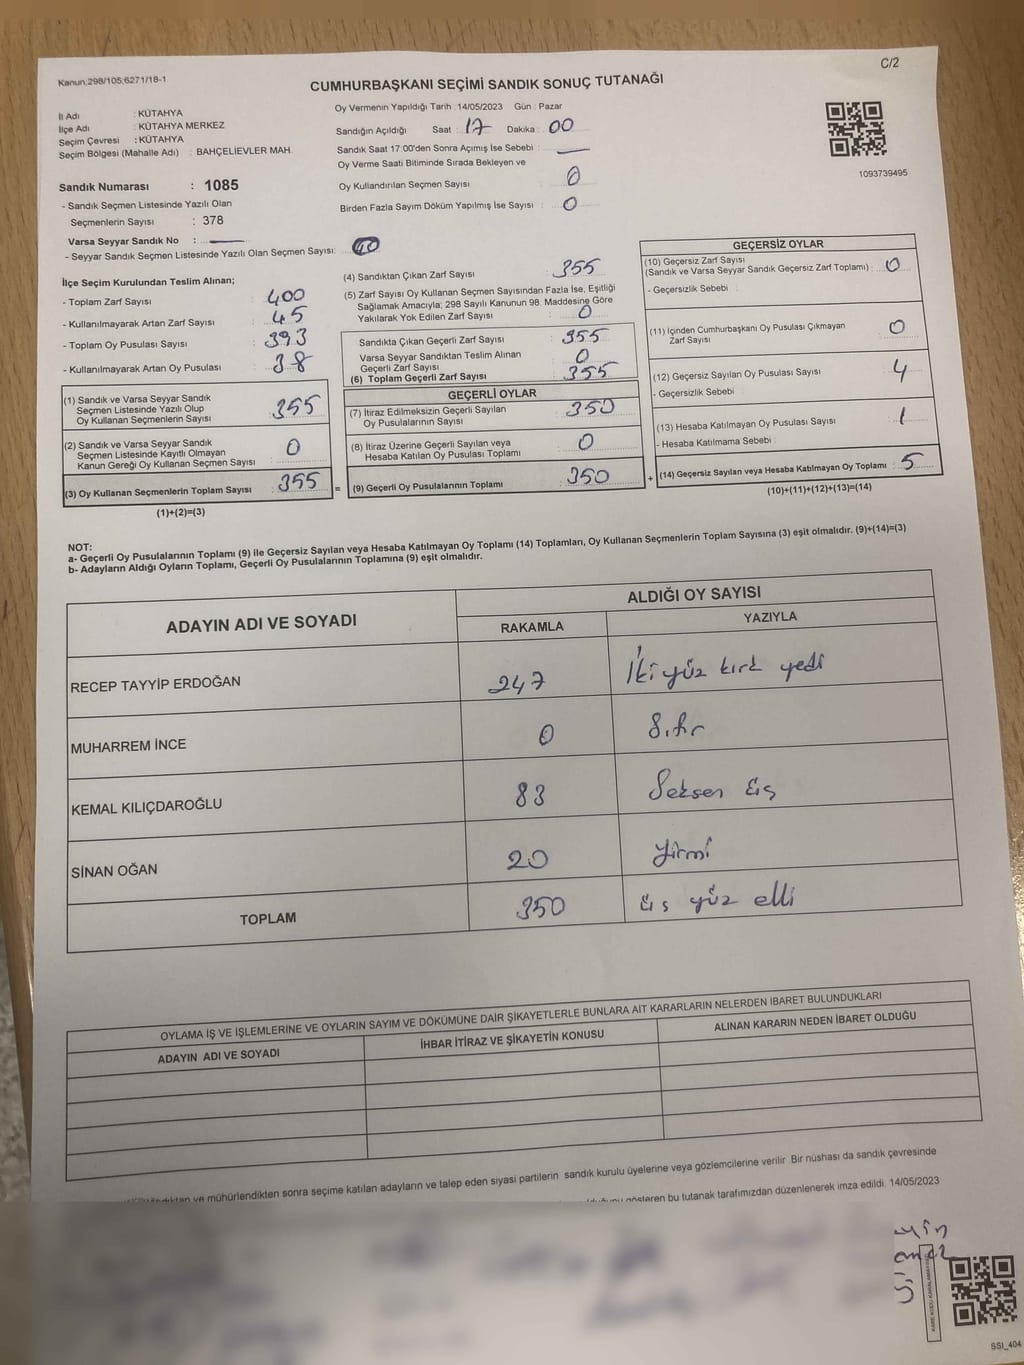 Kanun:298/105;6271/18-1
C/2
CUMHURBAŞKANI SEÇİMİ SANDIK SONUÇ TUTANAĞI
İl Adı : KÜTAHYA
İlçe Adı : KÜTAHYA MERKEZ
Seçim Çevresi : KÜTAHYA
Seçim Bölgesi (Mahalle Adı) : BAHÇELİEVLER MAH.
Sandık Numarası : 1085
- Sandık Seçmen Listesinde Yazılı Olan
Seçmenlerin Sayısı : 378
Varsa Seyyar Sandık No :
- Seyyar Sandık Seçmen Listesinde Yazılı Olan Seçmen Sayısı:
Oy Vermenin Yapıldığı Tarih : 14/05/2023 Gün : Pazar
Sandığın Açıldığı Saat : 17 Dakika : 00
Sandık Saat 17:00'den Sonra Açımış İse Sebebi :
Oy Verme Saati Bitiminde Sırada Bekleyen ve
Oy Kullandırılan Seçmen Sayısı : 0
Birden Fazla Sayım Döküm Yapılmış İse Sayısı : 0
1093739495
İlçe Seçim Kurulundan Teslim Alınan;
- Toplam Zarf Sayısı : 400
- Kullanılmayarak Artan Zarf Sayısı : 45
- Toplam Oy Pusulası Sayısı : 393
- Kullanılmayarak Artan Oy Pusulası : 38
(1) Sandık ve Varsa Seyyar Sandık
Seçmen Listesinde Yazılı Olup
Oy Kullanan Seçmenlerin Sayısı : 355
(2) Sandık ve Varsa Seyyar Sandık
Seçmen Listesinde Kayıtlı Olmayan
Kanun Gereği Oy Kullanan Seçmen Sayısı : 0
(3) Oy Kullanan Seçmenlerin Toplam Sayısı : 355
(1)+(2)=(3)
(4) Sandıktan Çıkan Zarf Sayısı : 355
(5) Zarf Sayısı Oy Kullanan Seçmen Sayısından Fazla İse, Eşitliği
Sağlamak Amacıyla; 298 Sayılı Kanunun 98. Maddesine Göre
Yakılarak Yok Edilen Zarf Sayısı : 0
Sandıkta Çıkan Geçerli Zarf Sayısı : 355
Varsa Seyyar Sandıktan Teslim Alınan
Geçerli Zarf Sayısı : 0
(6) Toplam Geçerli Zarf Sayısı : 355
GEÇERLİ OYLAR
(7) İtiraz Edilmeksizin Geçerli Sayılan
Oy Pusulalarının Sayısı : 350
(8) İtiraz Üzerine Geçerli Sayılan veya
Hesaba Katılan Oy Pusulası Toplamı : 0
= (9) Geçerli Oy Pusulalarının Toplamı : 350 +
GEÇERSİZ OYLAR
(10) Geçersiz Zarf Sayısı
(Sandık ve Varsa Seyyar Sandık Geçersiz Zarf Toplamı) : 0
- Geçersizlik Sebebi :
(11) İçinden Cumhurbaşkanı Oy Pusulası Çıkmayan
Zarf Sayısı : 0
(12) Geçersiz Sayılan Oy Pusulası Sayısı : 4
- Geçersizlik Sebebi :
(13) Hesaba Katılmayan Oy Pusulası Sayısı : 1
- Hesaba Katılmama Sebebi :
(14) Geçersiz Sayılan veya Hesaba Katılmayan Oy Toplamı : 5
(10)+(11)+(12)+(13)=(14)
NOT:
a- Geçerli Oy Pusulalarının Toplamı (9) ile Geçersiz Sayılan veya Hesaba Katılmayan Oy Toplamı (14) Toplamları, Oy Kullanan Seçmenlerin Toplam Sayısına (3) eşit olmalıdır. (9)+(14)=(3)
b- Adayların Aldığı Oyların Toplamı, Geçerli Oy Pusulalarının Toplamına (9) eşit olmalıdır.
ADAYIN ADI VE SOYADI
ALDIĞI OY SAYISI
RAKAMLA YAZIYLA
RECEP TAYYİP ERDOĞAN 247 İki yüz kırk yedi
MUHARREM İNCE 0 Sıfır
KEMAL KILIÇDAROĞLU 83 Seksen üç
SİNAN OĞAN 20 Yirmi
TOPLAM 350 üç yüz elli
OYLAMA İŞ VE İŞLEMLERİNE VE OYLARIN SAYIM VE DÖKÜMÜNE DAİR ŞİKAYETLERLE BUNLARA AİT KARARLARIN NELERDEN İBARET BULUNDUKLARI
ADAYIN ADI VE SOYADI İHBAR İTİRAZ VE ŞİKAYETİN KONUSU ALINAN KARARIN NEDEN İBARET OLDUĞU
ve mühürlendikten sonra seçime katılan adayların ve talep eden siyasi partilerin sandık kurulu üyelerine veya gözlemcilerine verilir Bir nüshası da sandık çevresinde
gösteren bu tutanak tarafımızdan düzenlenerek imza edildi. 14/05/2023
SSI_404